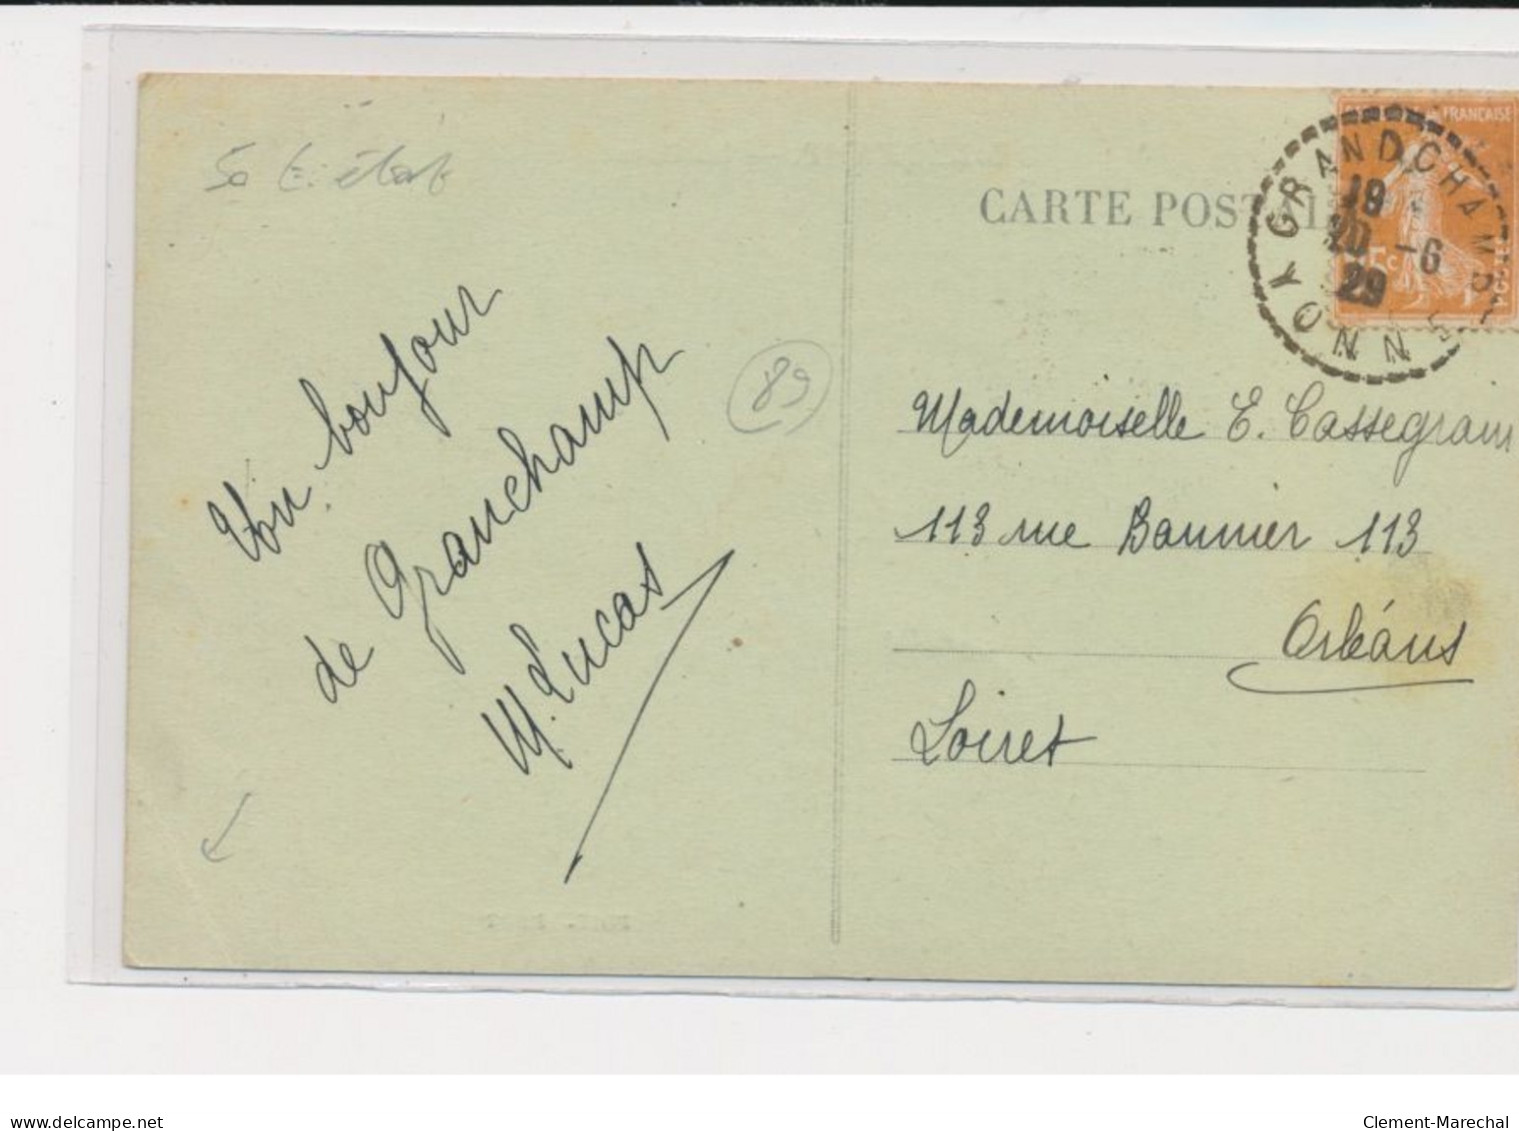 CARTE POSTALE
FRANÇAISE
GRANDCHAMP
19
20 -6
29
YONNE
5c
POSTES
Un bonjour
de Granchamp
M. Lucas
89
Mademoiselle E. Cassegrain
113 rue Bannier 113
Orléans
Loiret
delcampe.net
Clement-Marechal